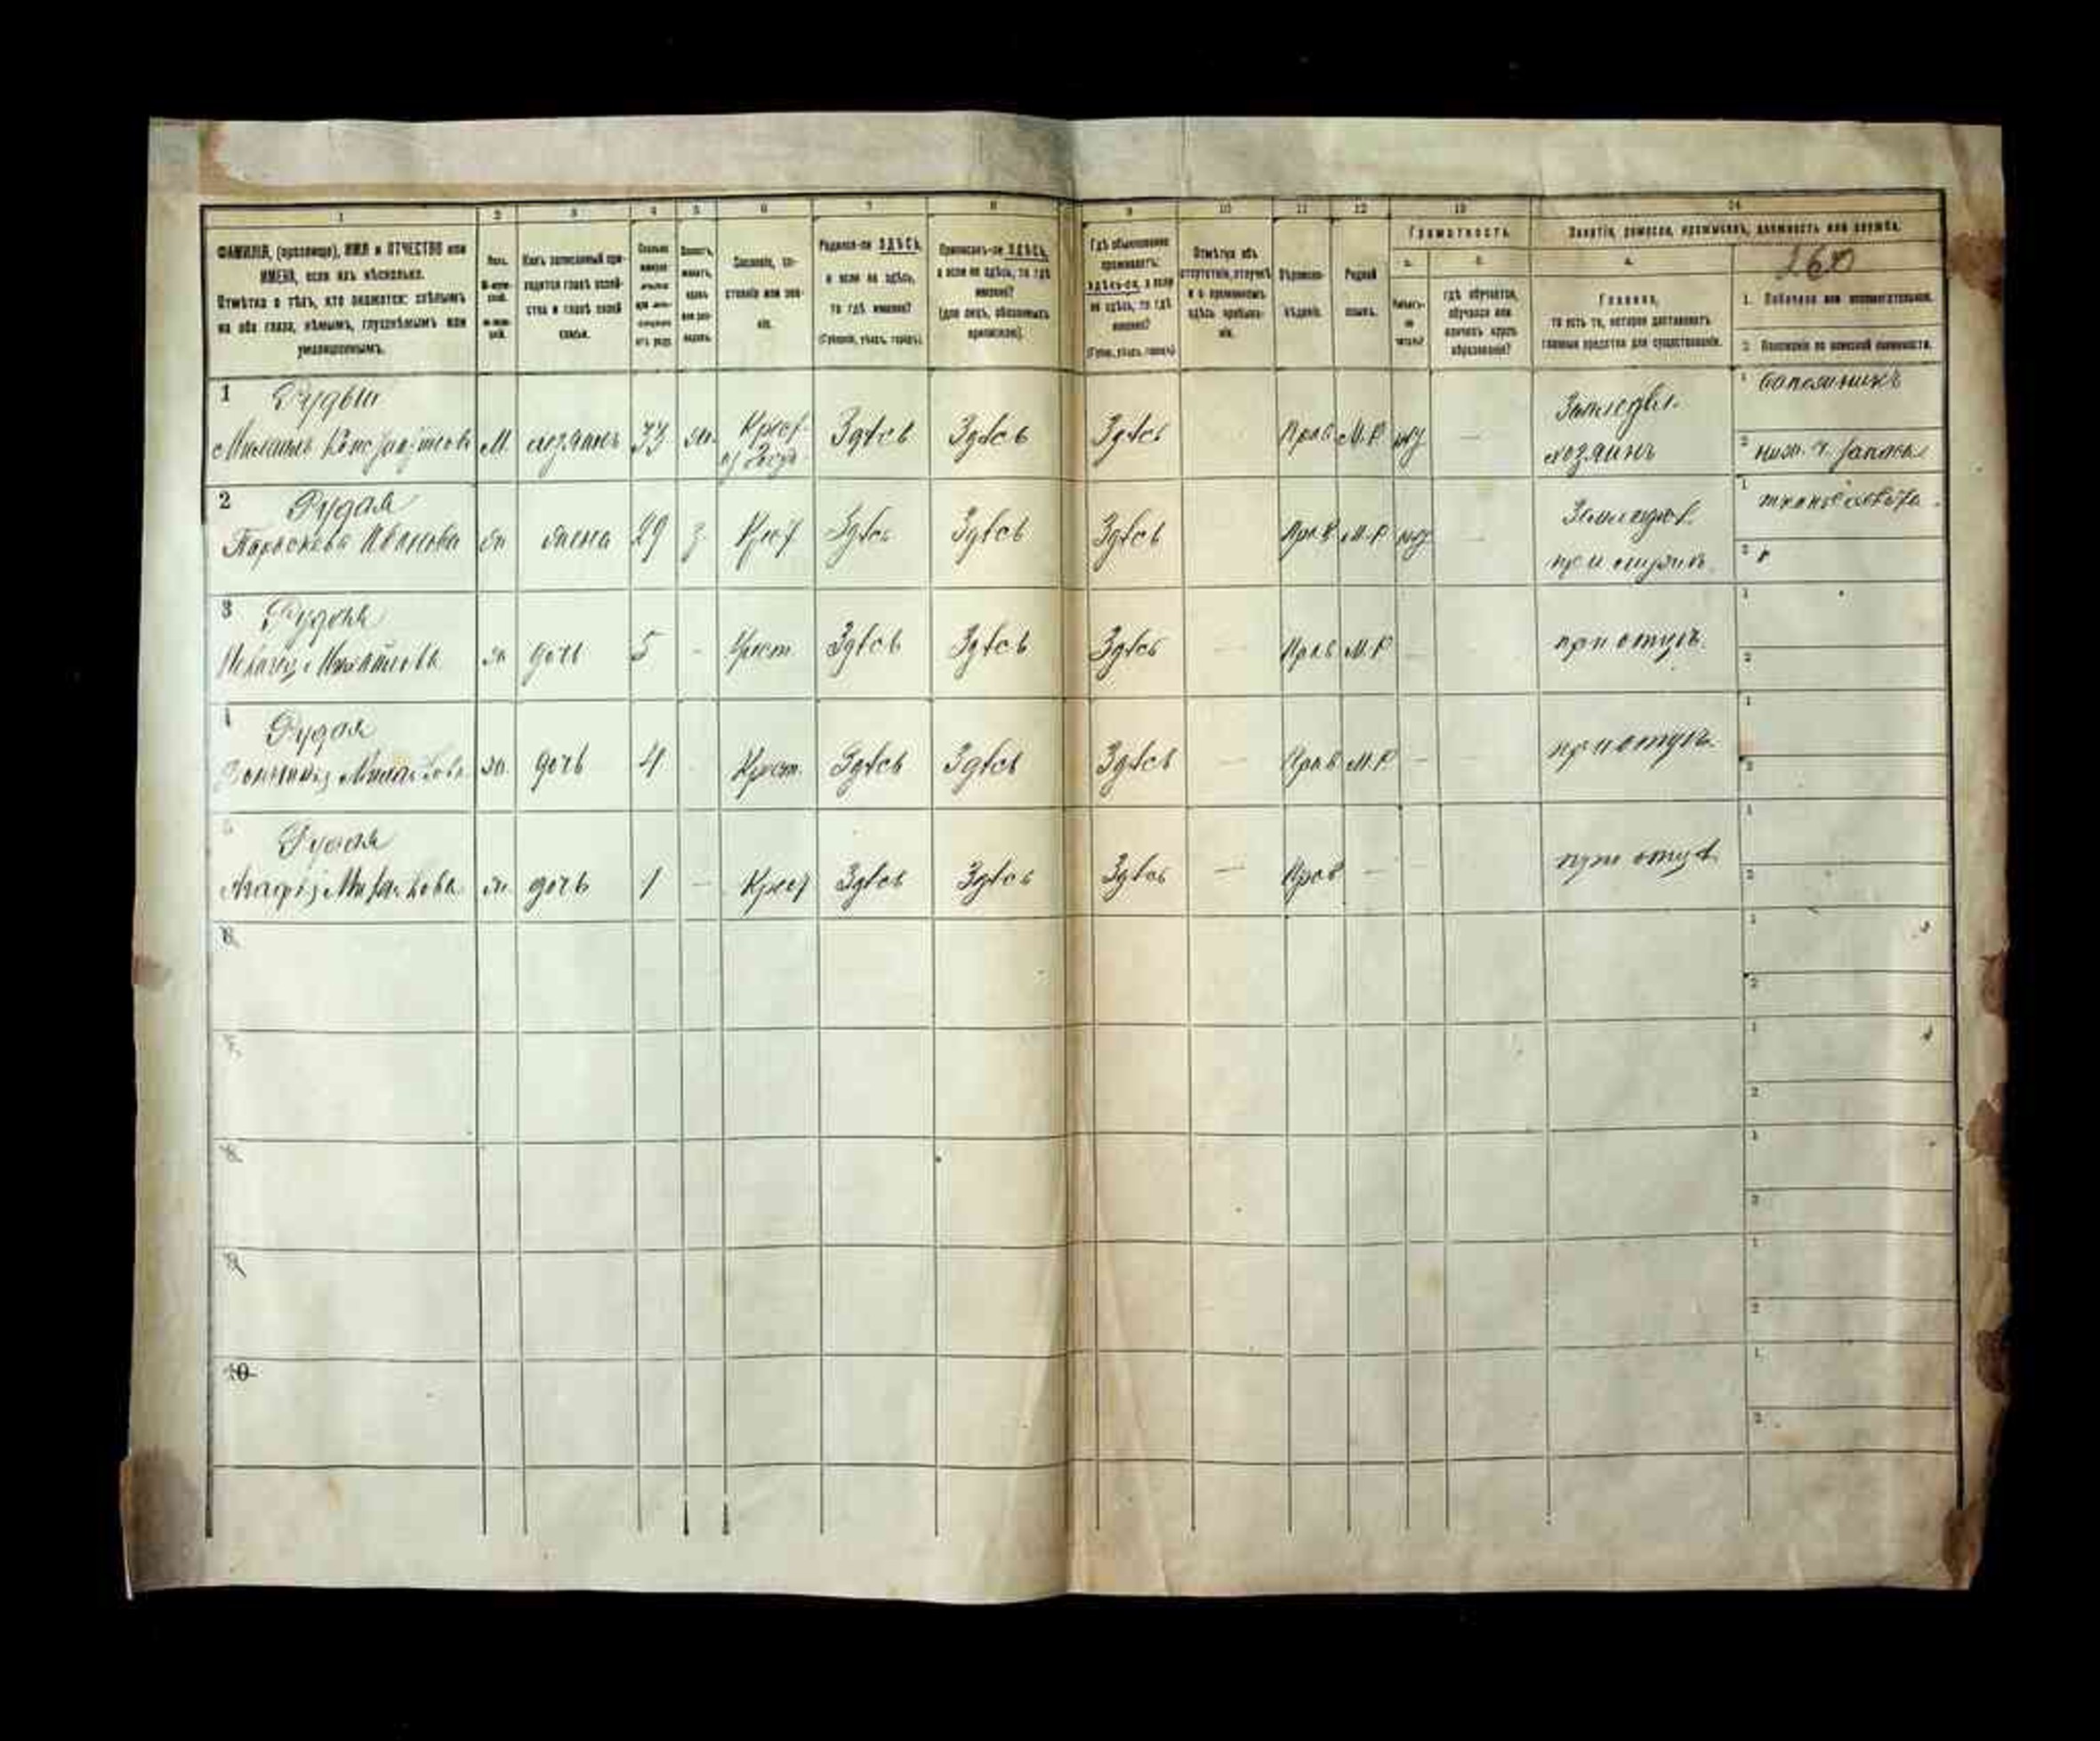 1 2 3 4 5 6 7 8 9 10 11 12 13 14
ФАМИЛІЯ, (прозвище), ИМЯ и ОТЧЕСТВО или
ИМЕНА, если ихъ нѣсколько.
Отмѣтка о тѣхъ, кто окажется: слѣпымъ
на оба глаза, нѣмымъ, глухонѣмымъ или
умалишеннымъ.
Полъ.
М-муж-
ской.
Ж-жен-
скій.
Какъ записанный при-
ходится главѣ хозяй-
ства и главѣ своей
семьи.
Сколько
минуло
лѣтъ
или мѣ-
сяцевъ
отъ роду.
Холостъ,
женатъ,
вдовъ
или раз-
веденъ.
Сословіе, со-
стояніе или зва-
ніе.
Родился-ли ЗДѢСЬ,
а если не здѣсь,
то гдѣ именно?
(Губернія, уѣздъ, городъ).
Приписанъ-ли ЗДѢСЬ,
а если не здѣсь, то гдѣ
именно?
(для лицъ, обязанныхъ
припискою).
Гдѣ обыкновенно
проживаетъ:
здѣсь-ли, а если
не здѣсь, то гдѣ
именно?
(Губерн., уѣздъ, городъ)
Отмѣтка объ
отсутствіи, отлучкѣ
и о временномъ
здѣсь пребыва-
ніи.
Вѣроиспо-
вѣданіе.
Родной
языкъ.
Грамотность.
а. б.
Умѣетъ-
ли
читать?
гдѣ обучается,
обучался или
кончилъ курсъ
образованія?
Занятіе, ремесло, промыселъ, должность или служба.
а.
260
Главное,
то есть то, которое доставляетъ
главныя средства для существованія.
1. Побочное или вспомогательное.
2. Положеніе по воинской повинности.
1 Рудый
М. хозяинъ 33 жн. Крест. Здѣсь Здѣсь Здѣсь Прав М.Р. нѣт —
Земледѣл.
хозяинъ
1 сапожникъ
2 ниж. ч. запаса
2 Рудая
Параскева Иванова жн жена 29 з Крест Здѣсь Здѣсь Здѣсь Прав М.Р нѣт —
Земледѣл.
при
1
2
3 Рудая
Михайлова жн дочь 5 - Крест Здѣсь Здѣсь Здѣсь — Прав М.Р — —
при отцѣ.
1
2
4 Рудая
Михайлова жн дочь 4 - Крест. Здѣсь Здѣсь Здѣсь — Прав М.Р. — —
при отцѣ.
1
2
5 Рудая
Михайлова жн дочь 1 — Крест Здѣсь Здѣсь Здѣсь — Прав —
при отцѣ
1
2
6
1
2
7
1
2
8
1
2
9
1
2
10
1
2